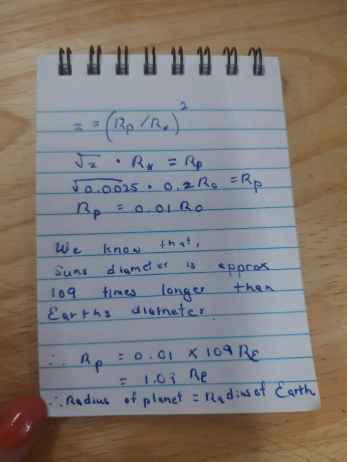 z = (Rp/R*)²
√z · R* = Rp
√0.0025 · 0.2 R⊙ = Rp
Rp = 0.01 R⊙
We know that,
Suns diameter is approx
109 times longer than
Earths diameter.
∴ Rp = 0.01 × 109 RE
= 1.0i RE
∴ Radius of planet = Radius of Earth